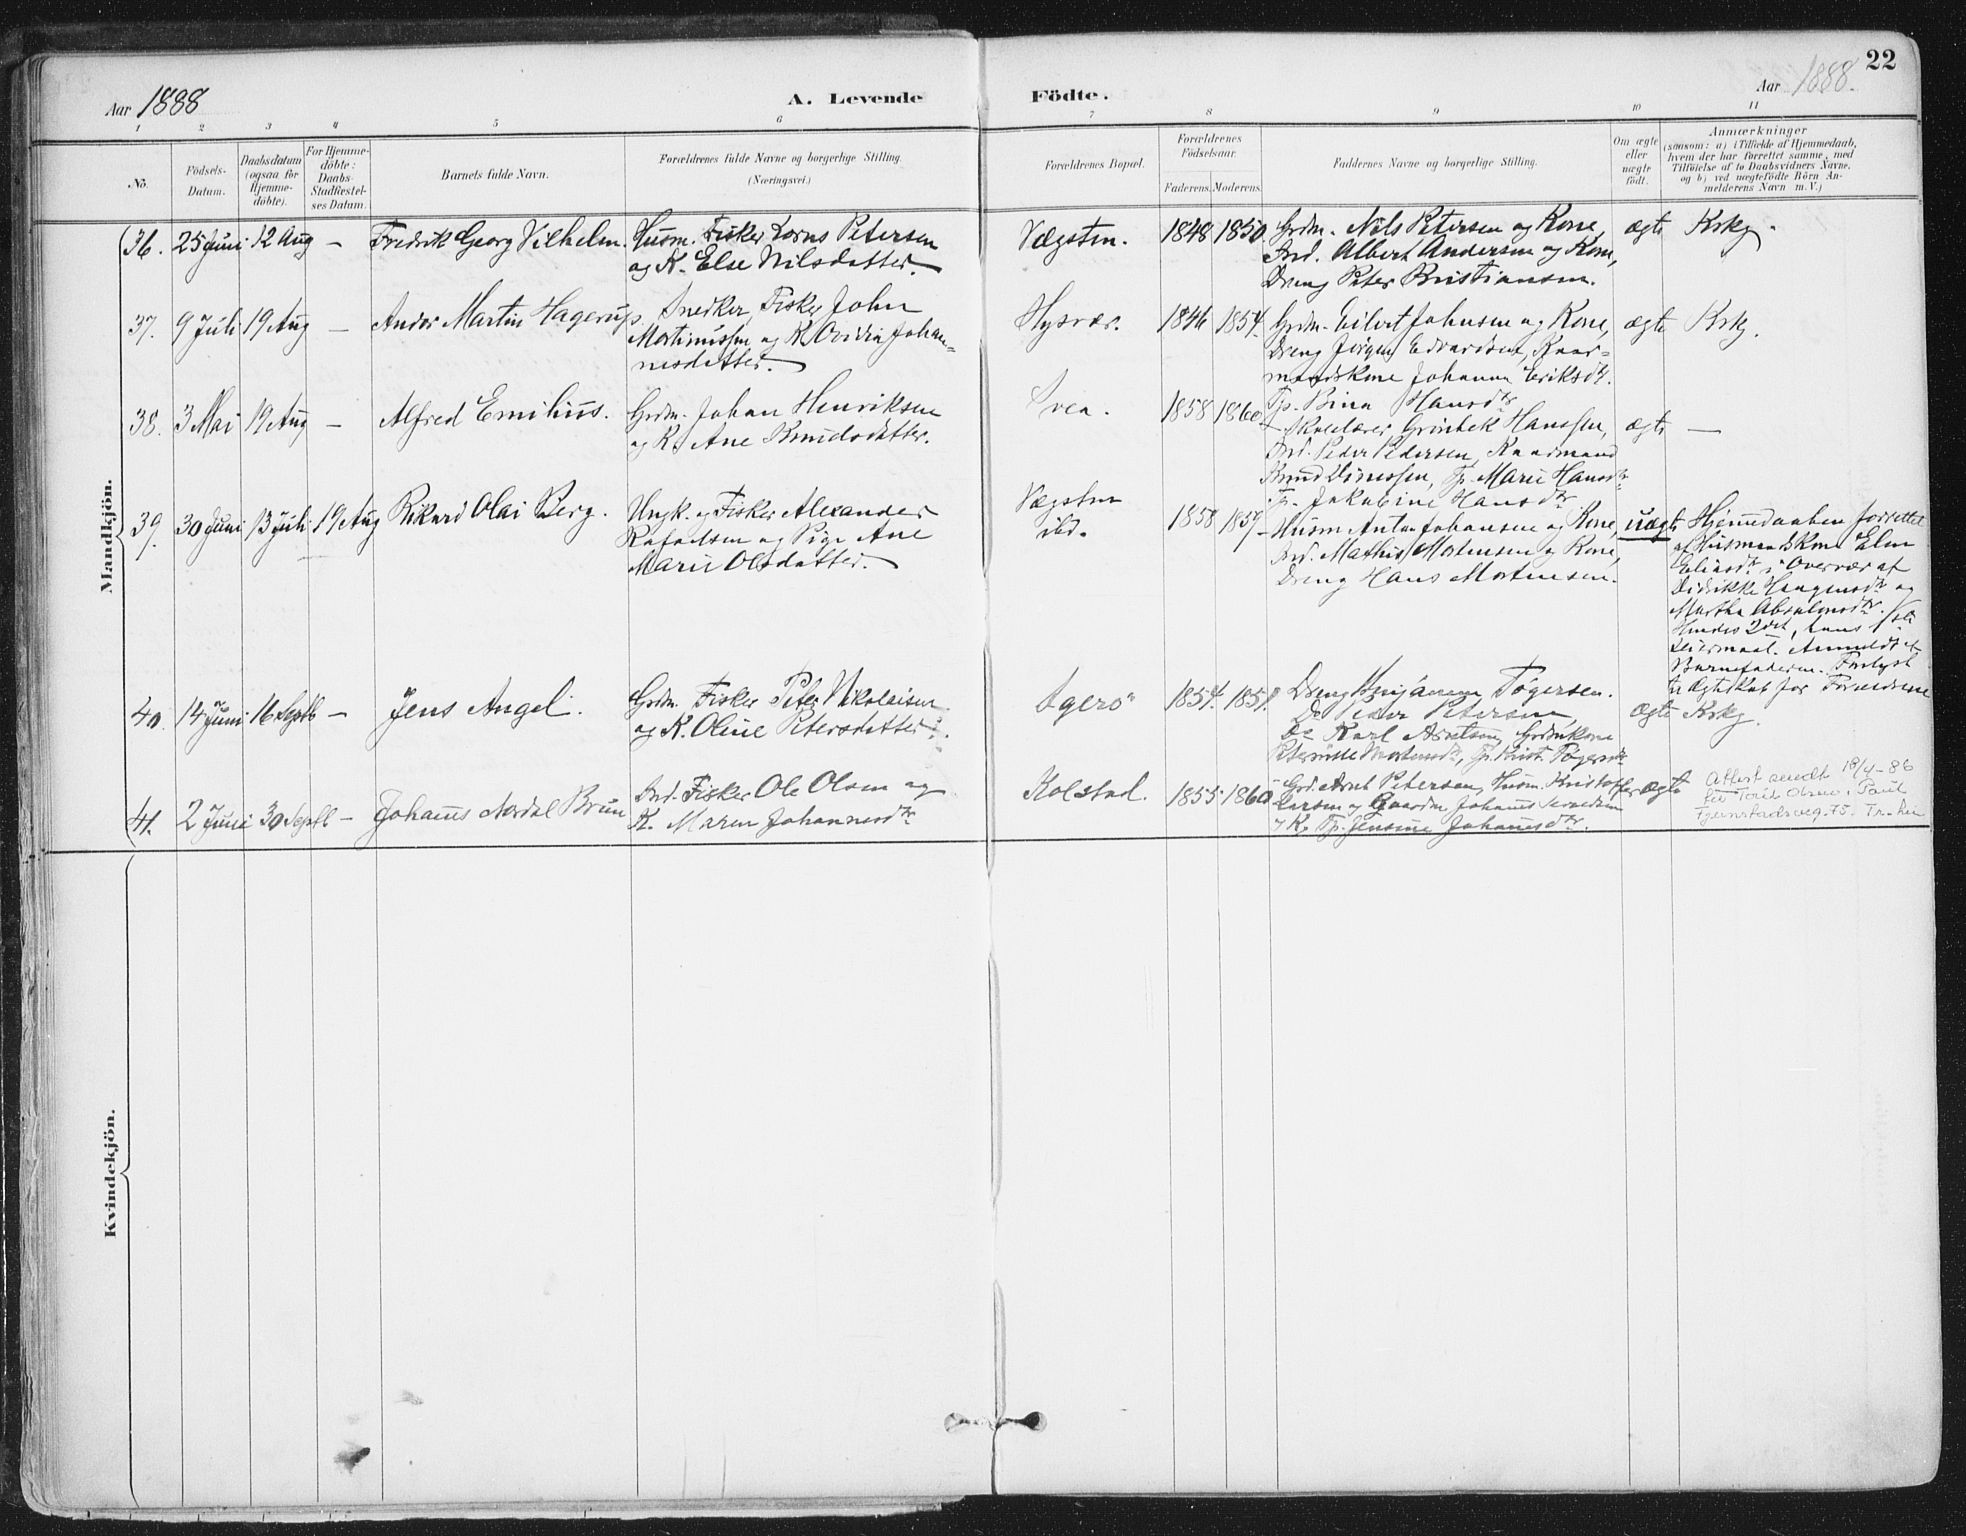 22
Aar 1888
A. Levende Födte.
Aar 1888.
1 2 3 4 5 6 7 8 9 10 11
No.
Födsels-
Datum.
Daabsdatum
(ogsaa for
Hjemme-
döbte).
For Hjemme-
döbte:
Daabs-
Stadfæstel-
ses Datum.
Barnets fulde Navn.
Forældrenes fulde Navne og borgerlige Stilling.
(Næringsvei.)
Forældrenes Bopæl.
Forældrenes
Födselsaar.
Faderens. Moderens.
Faddernes Navne og borgerlige Stilling.
Om ægte
eller
uægte
födt.
Anmærkninger
(saasom: a) i Tilfælde af Hjemmedaab,
hvem der har forrettet samme, med
Tilföielse af to Daabsvidners Navne,
og b) ved uægtefödte Börn An-
melderens Navn m. V.)
Mandkjön.
36. 25 Juni 12 Aug – Fredrik Georg Vilhelm.
Husm. Fisker Petersen
og K. Else Nilsdatter.
Vægsten. 1848 1850.
Grdm. Nils Petersen og Kone,
Ind. Albert Andersen og Kone,
Dreng Peter Kristiansen.
ægte Krkg.
37. 9 Juli 19 Aug – Ander Martin Hagerup.
Snedker, Fisker John
Mortinussen og K. Ovidia Johan-
nesdatter.
Hysvær. 1846 1854.
Grdm. Eilert Johnsen og Kone,
Dreng Jörgen Edvardsen, Kaar-
mandskone Johanna Eriksdtr.
ægte Krkg.
38. 3 Mai 19 Aug – Alfred Emilius.
Grdm. Johan Henriksen
og K. Ane Knudsdatter.
Svea. 1858 1860
Tp. Bina Hansdtr
Skolelærer Grönbek Hanssen,
Ind. Peder Pedersen, Kaarmand
Knud, Tp. Marie Hansdtr
Tp. Jakobine Hansdtr
ægte –
39. 30 Juni 13 Juli 19 Aug Rikard Olai Berg.
Ungk. og Fisker Alexander
Rafaelsen og Pige Ane
Marie Olsdatter.
Vægsten
ibd.
1858 1859
Husm Anton Johansen og Kone,
Ind. Mathis Mortensen og Kone,
Dreng Hans Mortensen.
uægte
Hjemmedaaben forrettet
af Husmandskone Elen
Eliasdtr i Overvær af
Didrikke Haagensdtr og
Martha Absalonsdtr.
Hendes 2det, hans 1ste
Leiermaal. Anmeldt af
Barnefaderen. Forlyst
til Ægteskab for Forældrene
40. 14 Juni 16 Septb – Jens Angel.
Grdm. Fisker Peter Nikolaisen
og K. Oline Petersdatter.
Igerö 1854. 1851.
Dreng Benjamin Tøgersen.
Do Peder Petersen
Do Karl Grdmkone
Tp. Tøgersdtr
ægte Krkg.
41. 2 Juni 30 Septb – Johannes Nordal Brun
Ind. Fisker Ole Olsen og
K. Maren Johannesdtr
Kolstad. 1855 1860
Grd. Arnt Petersen, Husm. Kristoffer
Larsen og Gaardm Johannes
og K. Tp. Jensine Johannesdtr.
ægte
Attest sendt 18/4-86
for Olsen,
75. Tr.heim
Kvindekjön.